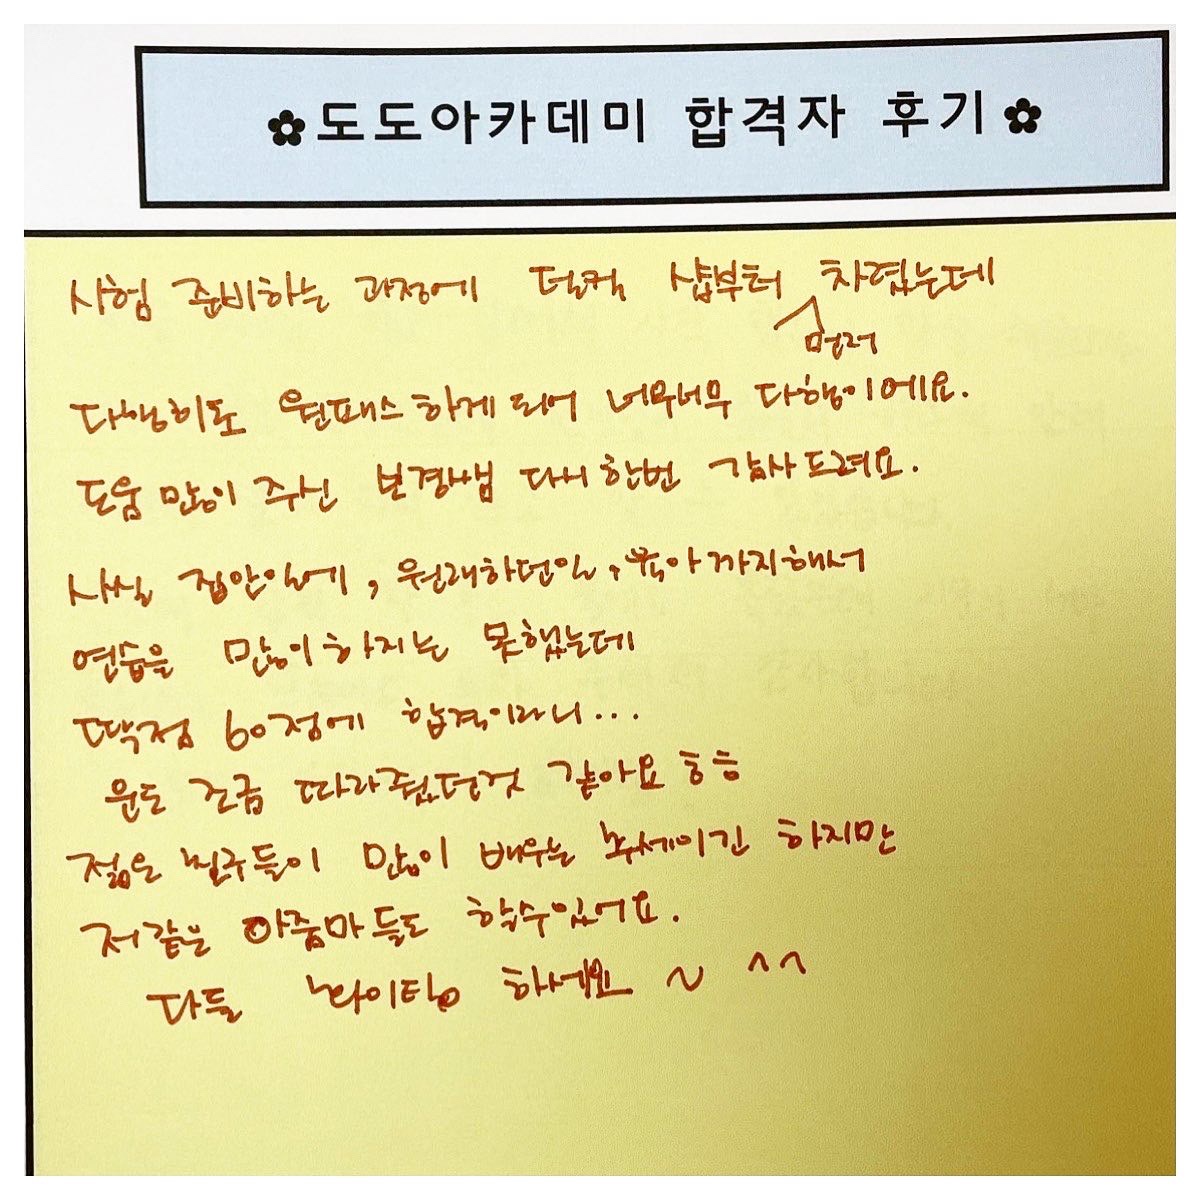 ✿도도아카데미 합격자 후기✿
시험 준비하는 과정에 덜컥 샵부터 차렸는데
먼저
다행히도 원패스하게 되어 너무너무 다행이에요.
도움 많이 주신 보경쌤 다시한번 감사드려요.
사실 집안일에, 원래하던일, 육아까지해서
연습을 많이하지는 못했는데
딱점 60점에 합격이라니...
운도 조금 따라줬던것 같아요 ㅎㅎ
젊은 친구들이 많이 배우는 추세이긴 하지만
저같은 아줌마들도 할수있어요.
다들 화이팅 하세요~ ^^